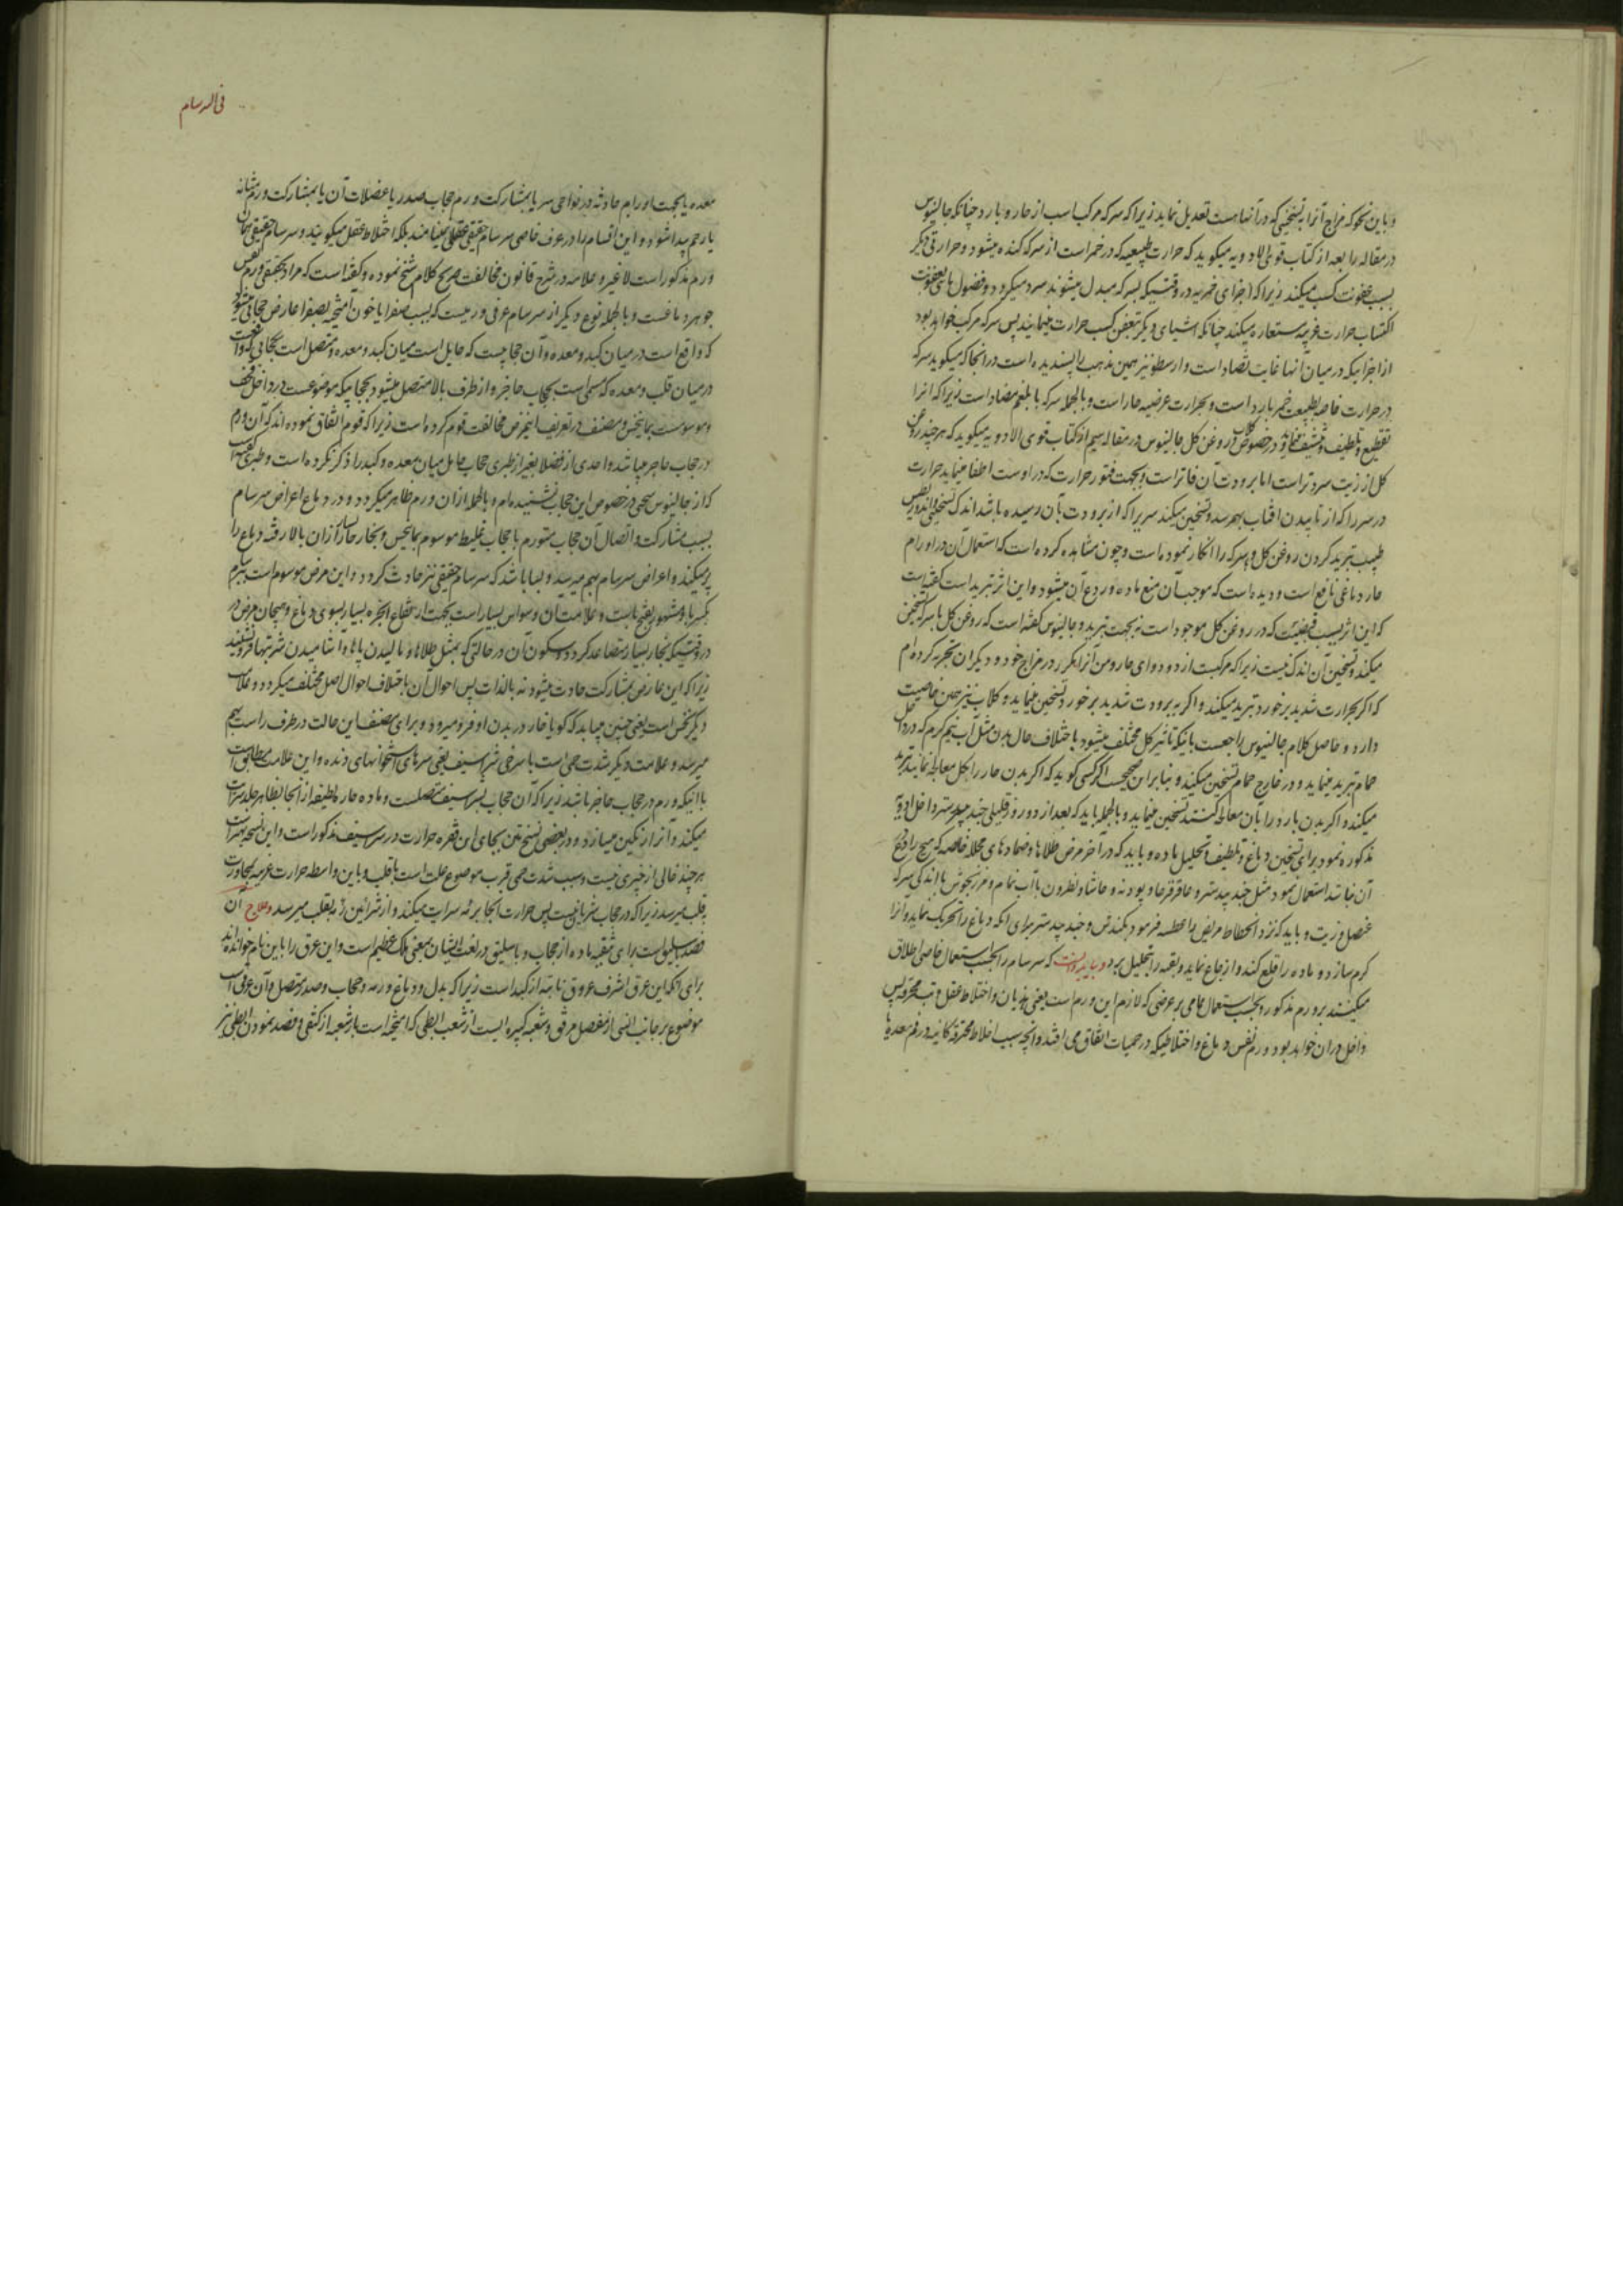 و باین نحو که مزاج آنرا به تسخینی که در آنها هست تعدیل نماید زیرا که سرکه مرکب است از حار و بارد چنانکه جالینوس
در مقاله رابعه از کتاب قوی الادویه میکوید که حرارت طبیعیه که در خمر است از سرکه کنده میشود و حرارتی دیکر
بسبب عفونت کسب میکند زیرا که اجزای خمریه در وقتیکه بسرکه مبدل میشوند سرد میکردد و فضول بعفونت
اکتساب حرارت غریبه مستعاره میکند چنانکه اشیای دیکر بتعفن کسب حرارت مینمایند پس سرکه مرکب خواهد بود
از اجزائیکه در میان آنها غایت تضاد است و ارسطو نیز همین مذهب را پسندیده است در انجا که میکوید سرکه
در حرارت خاصه بطبیعت خمر بارد است و بحرارت عرضیه حار است و بالجمله سرکه با بلغم مضاد است زیرا که انرا
تقطیع و تلطیف و تنشیف مینماید و در خصوص روغن کل جالینوس در مقاله سیم از کتاب قوی الادویه میکوید که هر چند روغن
کل از زیت سردتر است اما برودت آن فاتر است و بجهت فتور حرارت که در اوست اطفا مینماید حرارت
در سر را که از تابیدن افتاب بهم رسد و تسخین میکند سریرا که از برودت بآن رسیده باشد اندک تسخینی
طبیب تبرید کردن روغن کل و سرکه را انکار نموده است و چون مشاهده کرده است که استعمال آن در اورام
حار دماغی نافع است و دیده است که موجب آن منع ماده و ردع آن میشود و این اثر تبرید است کفته است
که این اثر بسبب قبضیست که در روغن کل موجود است نه بجهت تبرید و جالینوس کفته است که روغن کل با سرکه تسخین
میکند و تسخین آن اندک نیست زیرا که مرکبست از دو دوای حار و من آنرا مکرر در مزاج خود و دیکران تجربه کرده ام
که اکر بحرارت شدید بر خورد تبرید میکند و اکر به برودت شدید بر خورد تسخین مینماید و کلاب نیز همین خاصیت
دارد و حاصل کلام جالینوس راجعست باینکه تاثیر کل مختلف میشود باختلاف حال بدن مثل آب نیم کرم که در داخل
حمام تبرید مینماید و در خارج حمام تسخین میکند و بنابراین صحیحست اکر کسی کوید که اکر بدن حار را بکل معالجه نمایند تبرید
میکند و اکر بدن بارد را بآن معالجه کنند تسخین مینماید و بالجمله باید که بعد از دو روز قلیلی جند بیدستر داخل ادویه
مذکوره نمود برای تسخین دماغ و تلطیف و تحلیل ماده و باید که در آخر مرض طلاها و ضمادهای محلله خالصه که هیچ رادع
آن نباشد استعمال نمود مثل جند بیدستر و عاقرقرحا و پودنه و حاشا و نطرون با آب نمام و مرزنجوش با اندکی سرکه
عنصل و زیت و باید که نزد انحطاط مریض را عطسه فرمود بکندش و جند بیدستر برای انکه دماغ را تحریک نماید و آنرا
کرم سازد و ماده را قلع کند و ازعاج نماید و بقیه را تحلیل برد و باید دانست که سرسام را بحسب استعمال خاصی اطلاق
میکنند بر ورم مذکور و بحسب استعمال عامی بر عرضی که لازم این ورم است یعنی هذیان و اختلاط عقل و تب محرقه پس
داخل در ان خواهد بود ورم نفس دماغ و اختلاطیکه در حمیات اتفاق می افتد و انچه بسبب اخلاط محترقه کائنه در فم معده یا
فی السرسام
معده یا بجهت اورام حادثه در نواحی سر یا بمشارکت ورم حجاب صدر یا عضلات آن یا بمشارکت ورم مثانه
یا رحم پیدا شود و این اقسام را در عرف خاصی سرسام حقیقی نمینامند بلکه اختلاط عقل میکویند و سرسام حقیقی همان
ورم مذکور است لا غیر و علامه در شرح قانون مخالفت صریح کلام شیخ نموده و کفته است که مراد بحقیقی ورم نفس
جوهر دماغست و بالجمله نوع دیکر از سرسام عرفی ورمیست که بسبب صفرا یا خون آمیخته بصفرا عارض حجابی میشود
که واقع است در میان کبد و معده و آن حجابیست که حایل است میان کبد و معده و متصل است بحجابی که واقعست
در میان قلب و معده که مسمی است بحجاب حاجز و از طرف بالا متصل میشود بحجابیکه موضوعست در داخل قحف
و موسومست بمانینجس و مصنف در تعریف اینمرض مخالفت قوم کرده است زیرا که قوم اتفاق نموده اند که آن ورم
در حجاب حاجز میباشد و احدی از فضلا بغیر از طبری حجاب حایل میان معده و کبد را ذکر نکرده است و طبری کفته است
که از جالینوس سخنی در خصوص این حجاب نشنیده ام و بالجمله از ان ورم ظاهر میکردد در دماغ اعراض سرسام
بسبب مشارکت و اتصال آن حجاب متورم با حجاب غلیظ موسوم بمانینجس و بخار حار از ان بالا رفته دماغ را
پر میکند و اعراض سرسام بهم میرسد و بسا باشد که سرسام حقیقی نیز حادث کردد و این مرض موسوم است ببرسام
بکسر با و مشهور بفتح باست و علامت آن وسواس بسیار است بجهت ارتفاع ابخره بسیار بسوی دماغ و هیجان مرض در
در وقتیکه بخار بسیار متصاعد کردد و سکون آن در حالتی که بمثل طلاها و مالیدن پاها و آشامیدن شربتها فرو نشیند
زیرا که این عارض بمشارکت حادث میشود نه بالذات پس احوال آن باختلاف احوال اصل مختلف میکردد و علامت
دیکر نخس است یعنی چنین میباید که کویا خار در بدن او فرو میرود و برای مصنف این حالت در طرف راست بهم
میرسد و علامت دیکر شدت حمی است با سرخی شراسیف یعنی سرهای استخوانهای دنده و این علامت مطابق است
با اینکه ورم در حجاب حاجز باشد زیرا که آن حجاب بشراسیف متصلست و ماده حار لطیفه از انجا بظاهر جلد سرایت
میکند و آنرا رنکین میسازد و در بعضی نسخ متن بجای این فقره حرارت در شراسیف مذکور است و این نسخه بهتر است
هر چند خالی از چیزی نیست و سبب شدت حمی قرب موضوع علت است با قلب و باین واسطه حرارت غریبه بمجاورت
بقلب میرسد زیرا که در حجاب شریانیست پس حرارت انجا سرایت میکند و از شرائین بقلب میرسد و علاج آن
فصد باسلیق است برای تنقیه ماده از حجاب و باسلیق در لغت ایشان بمعنی ملک عظیم است و این عرق را باین نام خوانده اند
برای آنکه این عرق اشرف عروق نابته از کبد است زیرا که بدل و دماغ و ریه و حجاب و صدر متصل و آن عرقی است
موضوع بر جانب انسی از مفصل مرفق و شعبه کبیره ایست از شعب ابطی که امیخته است بشعبه از کتفی و فصد نمودن ابطی نیز